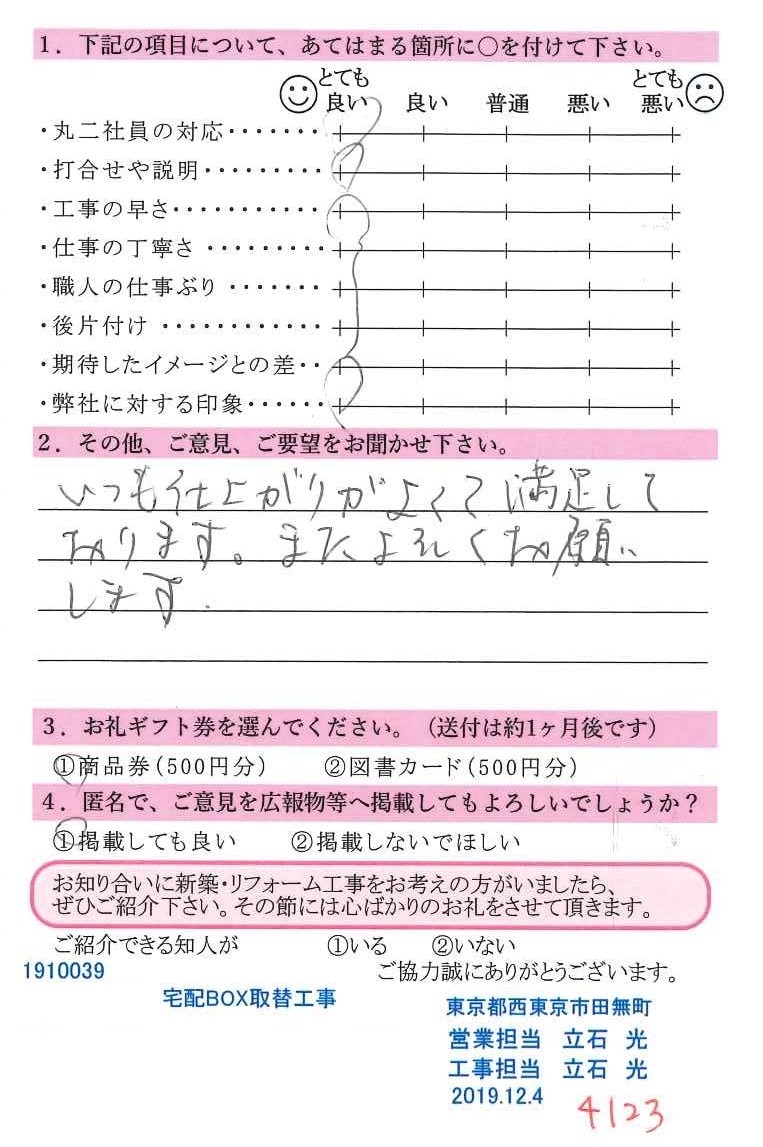 1．下記の項目について、あてはまる箇所に○を付けて下さい。
とても良い 良い 普通 悪い とても悪い
・丸二社員の対応・・・・・・
・打合せや説明・・・・・・・・・
・工事の早さ・・・・・・・・・・・
・仕事の丁寧さ ・・・・・・・・・
・職人の仕事ぶり ・・・・・・・
・後片付け ・・・・・・・・・・・・
・期待したイメージとの差・・
・弊社に対する印象・・・・・・
2．その他、ご意見、ご要望をお聞かせ下さい。
いつも仕上がりがよくて満足して
おります。またよろしくお願い
します.
3．お礼ギフト券を選んでください。（送付は約1ヶ月後です）
①商品券（500円分） ②図書カード（500円分）
4．匿名で、ご意見を広報物等へ掲載してもよろしいでしょうか？
①掲載しても良い ②掲載しないでほしい
お知り合いに新築・リフォーム工事をお考えの方がいましたら、
ぜひご紹介下さい。その節には心ばかりのお礼をさせて頂きます。
ご紹介できる知人が ①いる ②いない
1910039 ご協力誠にありがとうございます。
宅配BOX取替工事
東京都西東京市田無町
営業担当 立石 光
工事担当 立石 光
2019.12.4
4123